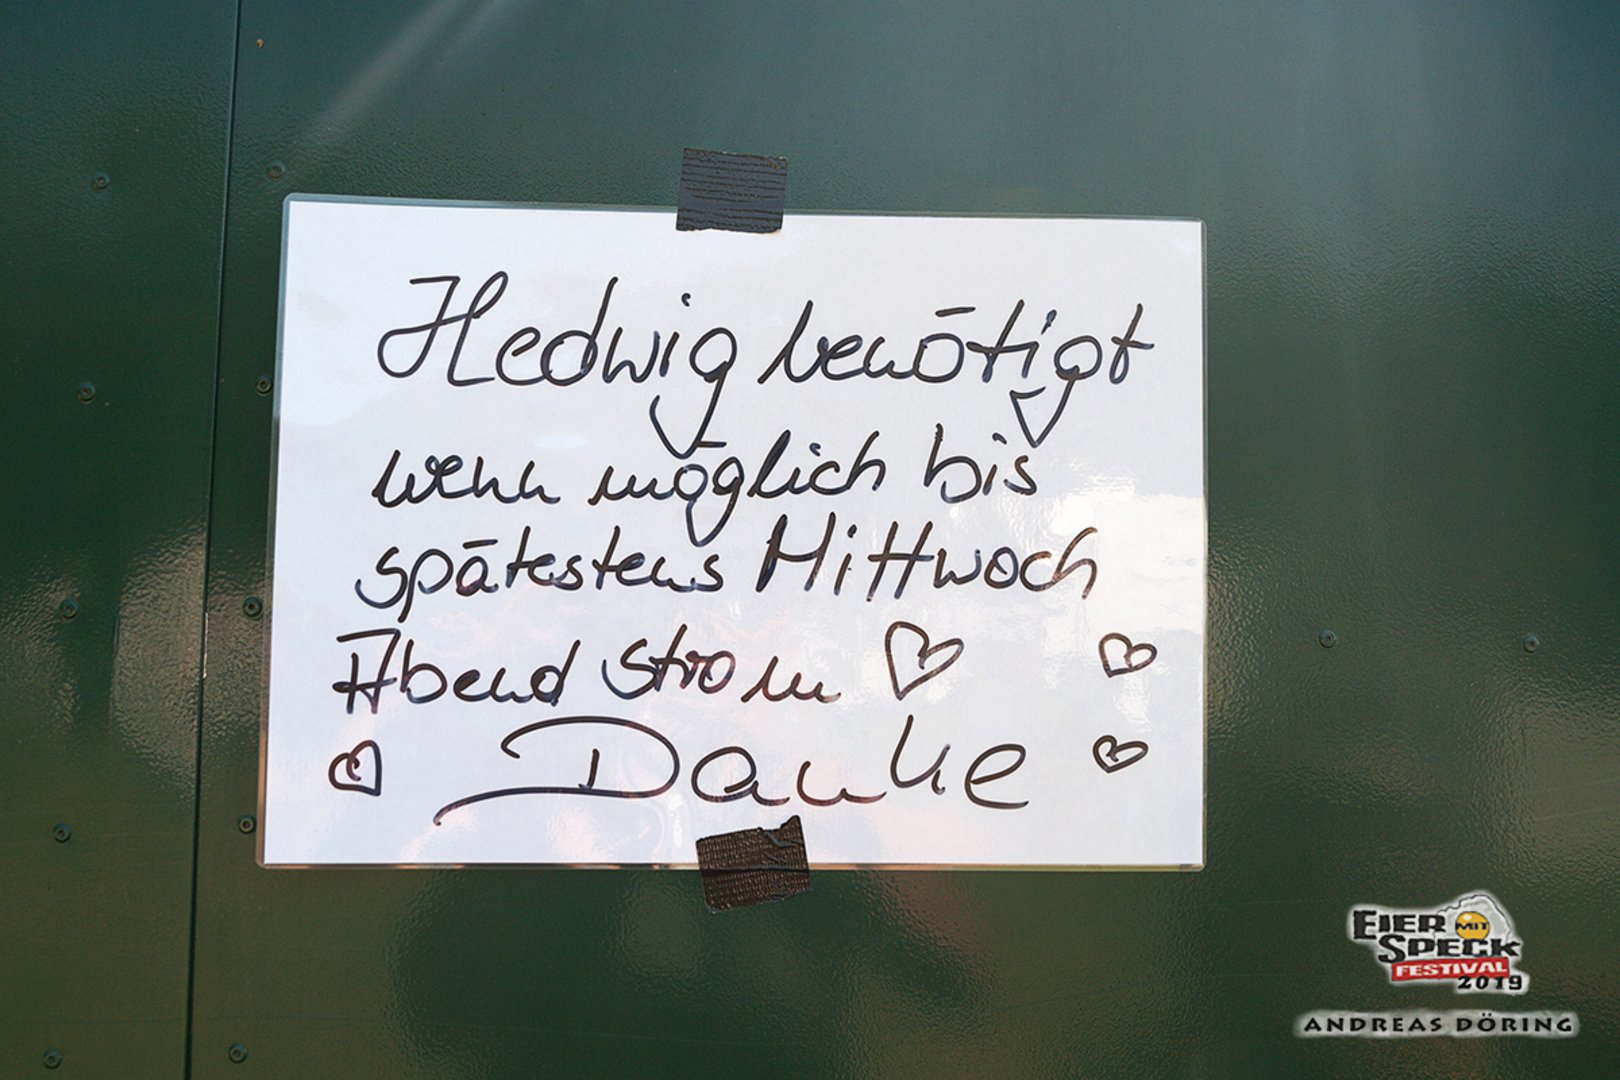 Hedwig benötigt
wenn möglich bis
spätestens Mittwoch
Abend Strom
Danke
EIER MIT
SPECK
FESTIVAL
2019
ANDREAS DÖRING